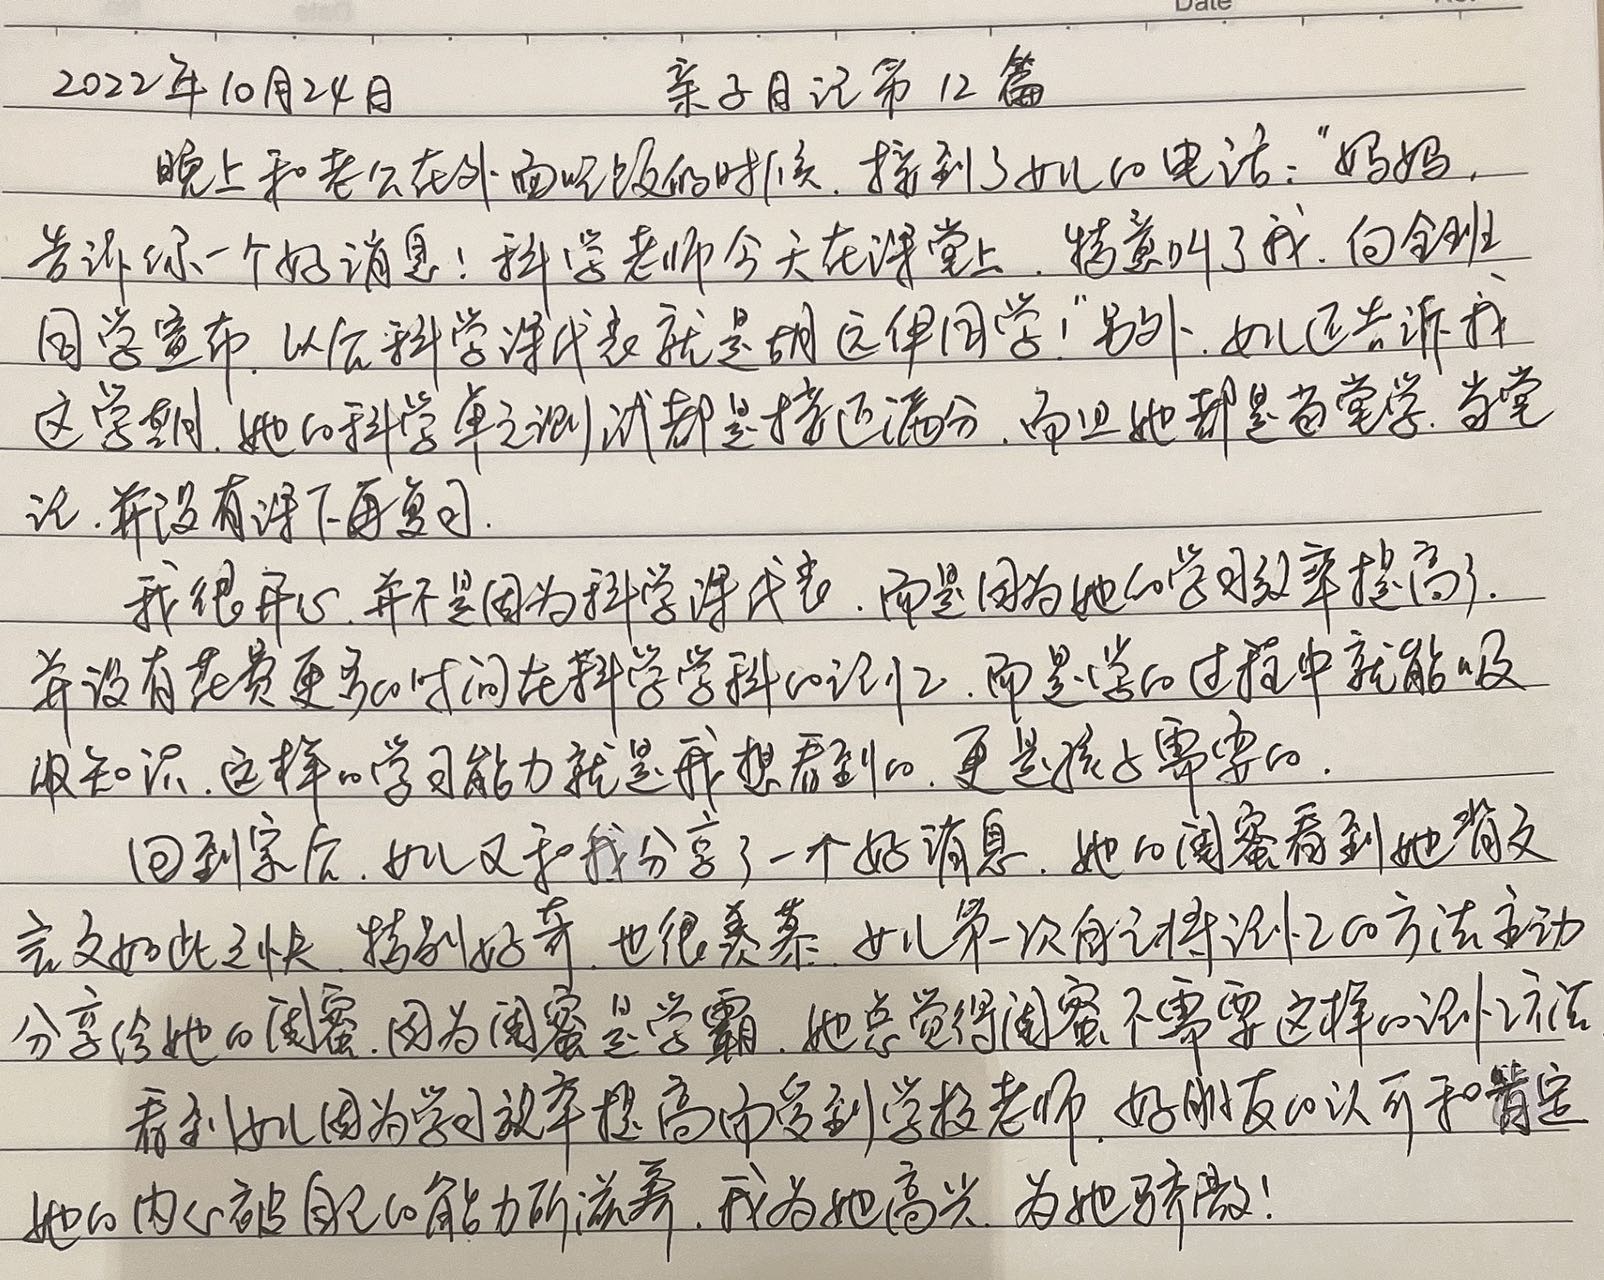 Date
2022年10月24日 亲子日记第12篇
晚上和老公在外面吃饭的时候，接到了女儿的电话：“妈妈，
告诉你一个好消息！科学老师今天在课堂上，特意叫了我，向全班
同学宣布，以后科学课代表就是胡这伊同学！”另外，女儿还告诉我
这学期，她的科学单元测试都是接近满分，而且她都是当堂学，当堂
记，并没有课下再复习.
我很开心，并不是因为科学课代表，而是因为她的学习效率提高了.
并没有花费更多的时间在科学学科的记忆，而是学的过程中就能吸
收知识，这样的学习能力就是我想看到的，更是孩子需要的.
回到家后，女儿又和我分享了一个好消息，她的闺蜜看到她背文
言文如此之快，特别好奇，也很羡慕，女儿第一次自己将记忆的方法主动
分享给她的闺蜜，因为闺蜜是学霸，她总觉得闺蜜不需要这样的记忆方法.
看到女儿因为学习效率提高而受到学校老师，好朋友的认可和肯定
她的内心被自己的能力所滋养，我为她高兴，为她骄傲！